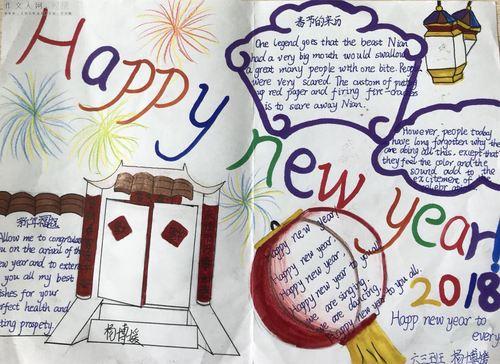 作文人网
Happy
new year!
2018
春节的来历
One legend goes that the beast Nian
had a very big mouth would swallow
a great many people with one bite. Peop
were very scared. The custom of putting
up red paper and firing fire-crackers
is to scare away Nian.
However people today
have long forgotten why they
are doing all this, except that
they feel the color and the
sound add to the
excitement of
新年祝福
Allow me to congratula
you on the arrival of the
new year and to extend
you all my best
wishes for your
perfect health and
lasting prospety.
杨博媛
Happy new year!
Happy new year,
Happy new year,
Happy new year to you all!
We are singing,
we are dancing,
Happy new year to you all.
Happ new year to
every
六三班 杨博媛